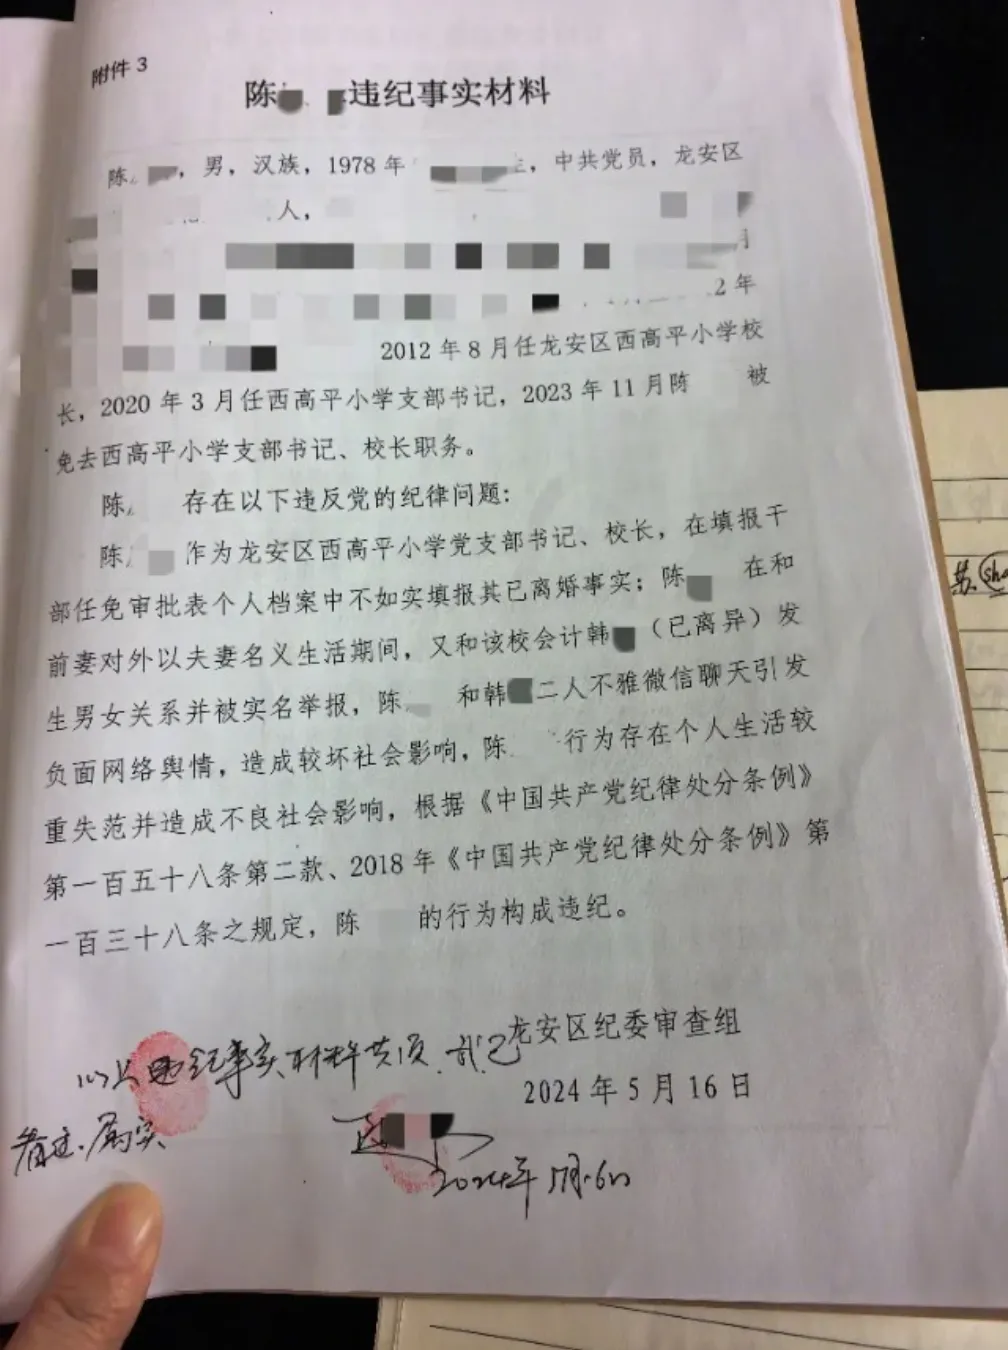 附件 3
陈 违纪事实材料
陈 ,男,汉族,1978 年 ,中共党员,龙安区
人,
月
2 年
2012 年 8 月任龙安区西高平小学校
长,2020 年 3 月任西高平小学支部书记,2023 年 11 月陈 被
免去西高平小学支部书记、校长职务。
陈 存在以下违反党的纪律问题:
陈 作为龙安区西高平小学党支部书记、校长,在填报干
部任免审批表个人档案中不如实填报其已离婚事实;陈 在和
前妻对外以夫妻名义生活期间,又和该校会计韩 (已离异)发
生男女关系并被实名举报,陈 和韩 二人不雅微信聊天引发
负面网络舆情,造成较坏社会影响,陈 行为存在个人生活较
重失范并造成不良社会影响,根据《中国共产党纪律处分条例》
第一百五十八条第二款、2018 年《中国共产党纪律处分条例》第
一百三十八条之规定,陈 的行为构成违纪。
龙安区纪委审查组
以上违纪事实材料共1页,我已
2024 年 5 月 16 日
看过.属实
2024年5月16日
苏